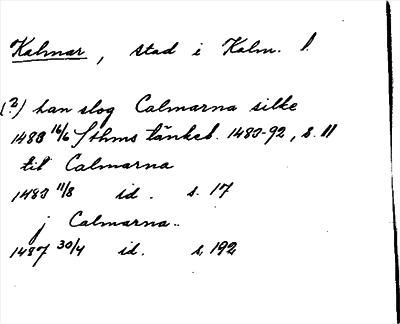 Kalmar, stad i Kalm. l.
(?) han slog Calmarna silke
1483 16/6 Sthms tänkeb. 1483-92, s. 11
til Calmarna
1483 11/8 id. s. 17
j Calmarna..
1487 30/4 id. s. 192